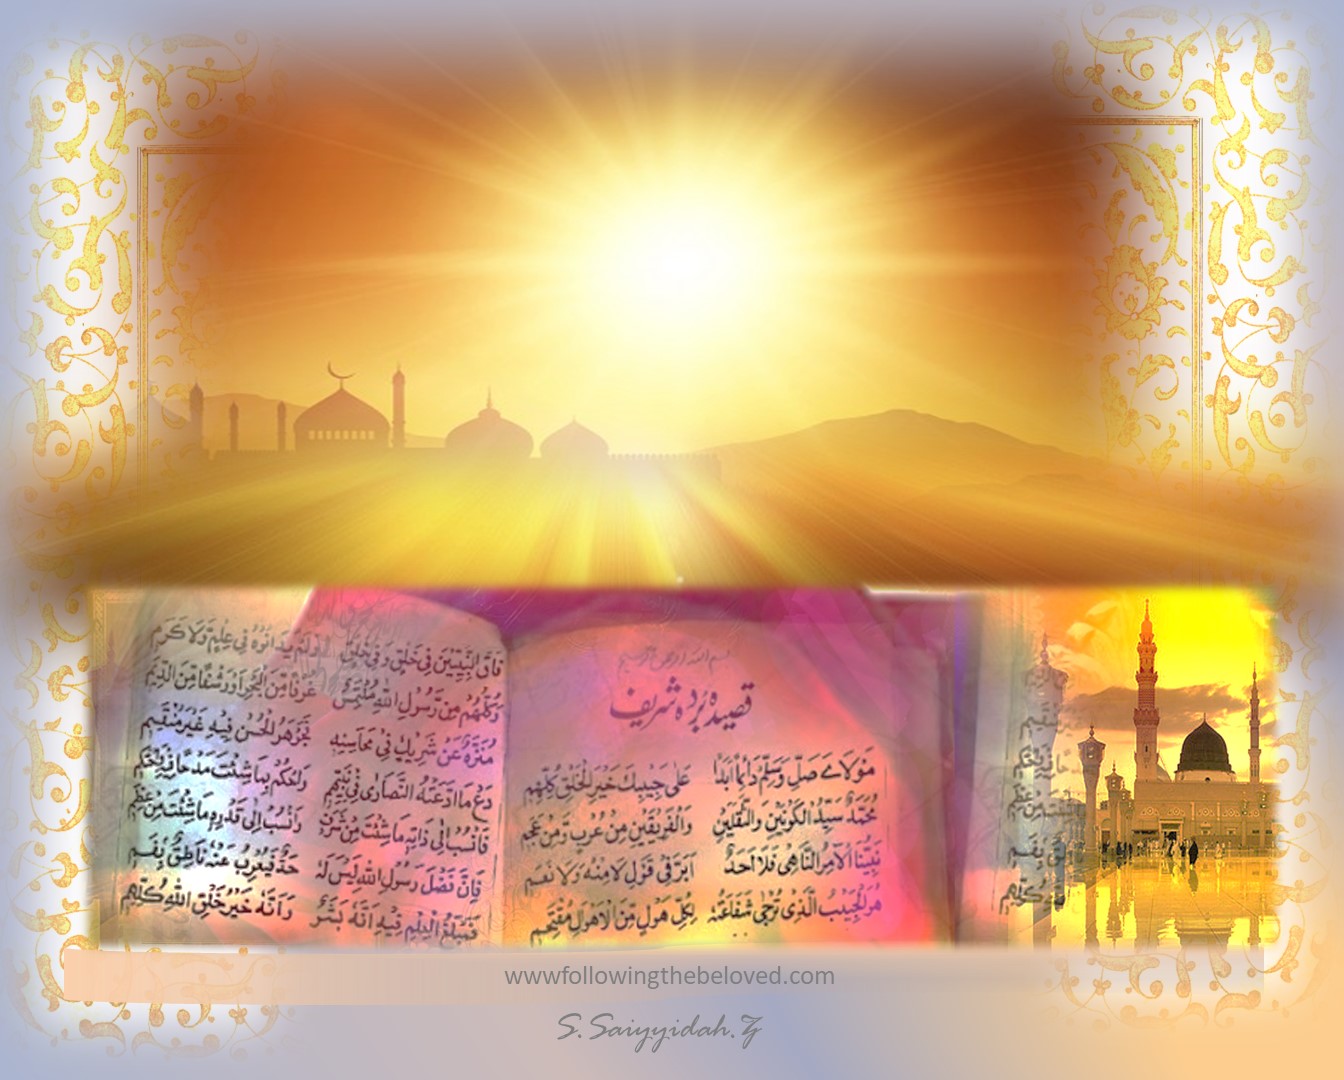 بسم الله الرحمن الرحيم
قصيده برده شريف
مَوْلَاىَ صَلِّ وَسَلِّمْ دَائِمًا اَبَدًا عَلٰى حَبِيْبِكَ خَيْرِ الْخَلْقِ كُلِّهِمِ
مُحَمَّدٌ سَيِّدُ الْكَوْنَيْنِ وَالثَّقَلَيْنِ وَالْفَرِيْقَيْنِ مِنْ عُرْبٍ وَّمِنْ عَجَمِ
نَبِيُّنَا الْاٰمِرُ النَّاهِىْ فَلَا اَحَدٌ اَبَرَّ فِىْ قَوْلِ لَا مِنْهُ وَلَا نَعَمِ
هُوَ الْحَبِيْبُ الَّذِىْ تُرْجٰى شَفَاعَتُهٗ لِكُلِّ هَوْلٍ مِّنَ الْاَهْوَالِ مُقْتَحِمِ
فَاقَ النَّبِيِّيْنَ فِىْ خَلْقٍ وَّفِىْ خُلُقٍ وَلَمْ يُدَانُوْهُ فِىْ عِلْمٍ وَّلَا كَرَمِ
وَكُلُّهُمْ مِّنْ رَّسُوْلِ اللهِ مُلْتَمِسٌ غَرْفًا مِّنَ الْبَحْرِ اَوْ رَشْفًا مِّنَ الدِّيَمِ
مُنَزَّهٌ عَنْ شَرِيْكٍ فِىْ مَحَاسِنِهٖ فَجَوْهَرُ الْحُسْنِ فِيْهِ غَيْرُ مُنْقَسِمِ
دَعْ مَا ادَّعَتْهُ النَّصَارٰى فِىْ نَبِيِّهِمِ وَاحْكُمْ بِمَا شِئْتَ مَدْحًا فِيْهِ وَاحْتَكِمِ
فَانْسُبْ اِلٰى ذَاتِهٖ مَا شِئْتَ مِنْ شَرَفٍ وَانْسُبْ اِلٰى قَدْرِهٖ مَا شِئْتَ مِنْ عِظَمِ
فَاِنَّ فَضْلَ رَسُوْلِ اللهِ لَيْسَ لَهٗ حَدٌّ فَيُعْرِبَ عَنْهُ نَاطِقٌ بِفَمِ
فَمَبْلَغُ الْعِلْمِ فِيْهِ اَنَّهٗ بَشَرٌ وَاَنَّهٗ خَيْرُ خَلْقِ اللهِ كُلِّهِمِ
wwwfollowingthebeloved.com
S.Saiyyidah.Z